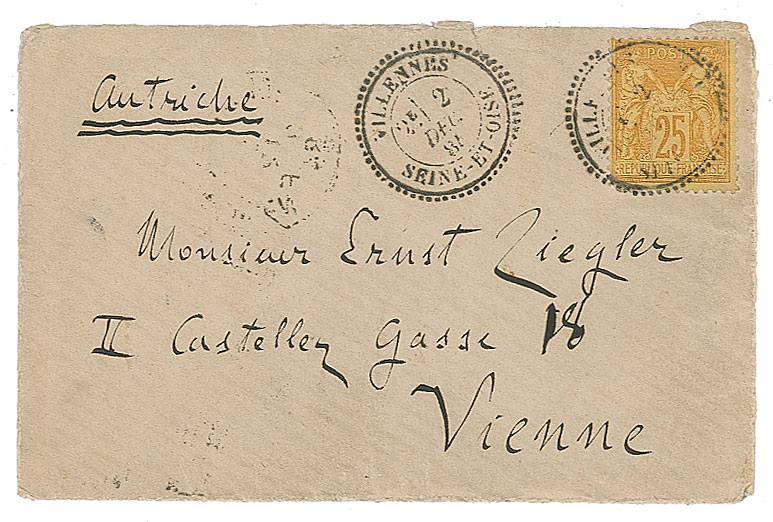 Autriche
VILLENNES
2E/ 2
DEC
81
SEINE-ET-OISE
VILLE
2
POSTE
25
REPUBLIQUE FRANCAISE
Monsieur Ernst Ziegler
II Castellez Gasse 18
Vienne